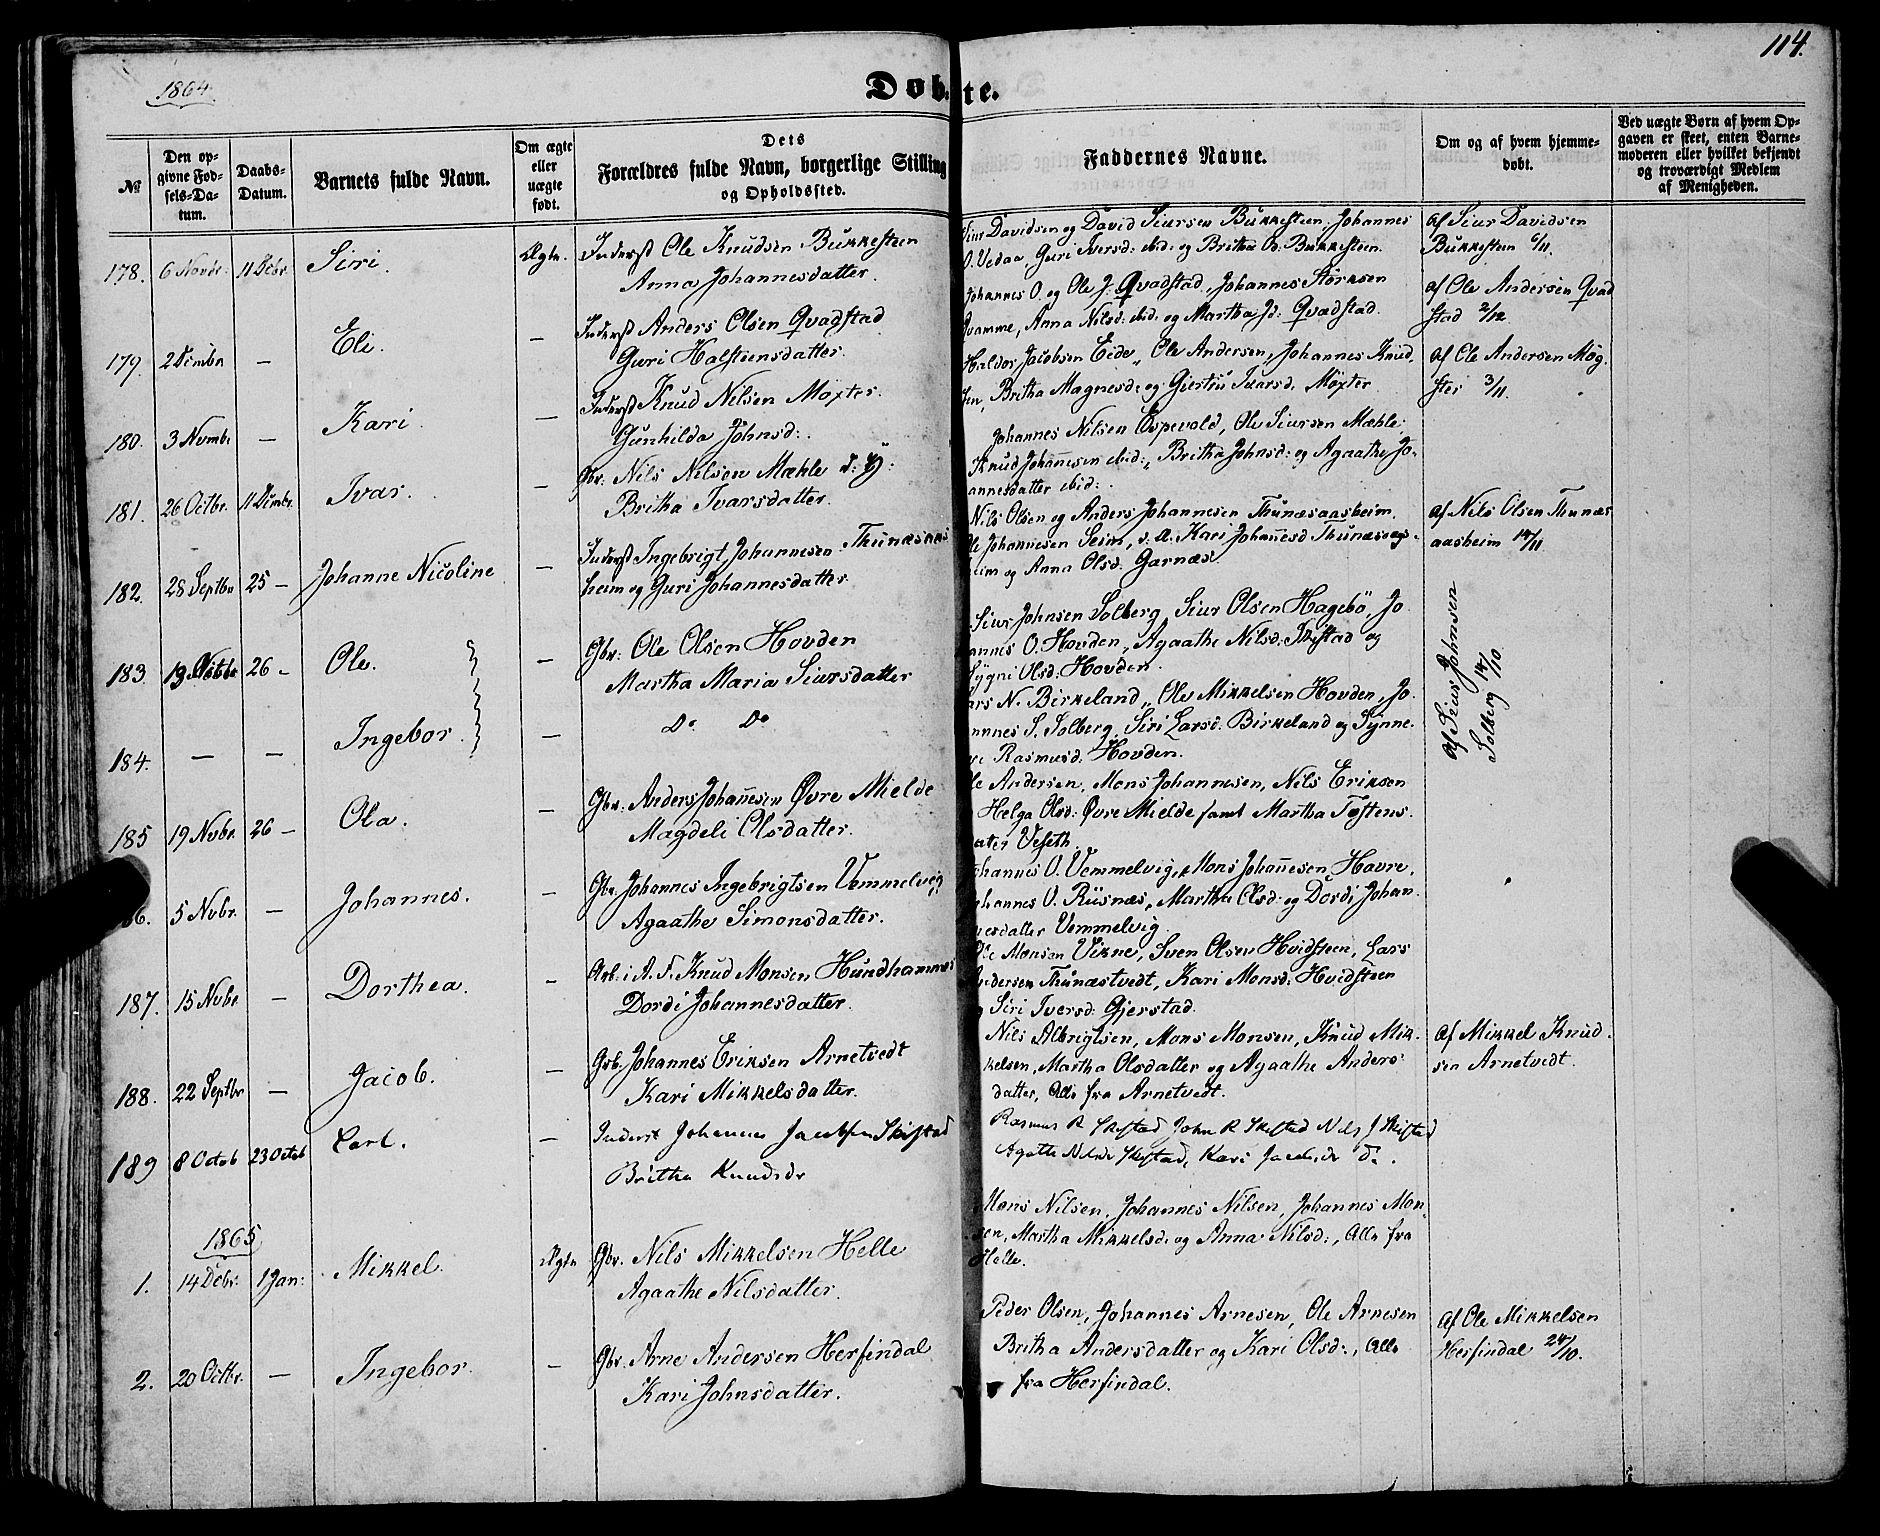 114.
1864
Døbte.
№
Den opgivne Fødsels-Datum.
Daabs-Datum.
Barnets fulde Navn.
Om ægte eller uægte født.
Dets Forældres fulde Navn, borgerlige Stilling og Opholdssted.
Faddernes Navne.
Om og af hvem hjemmedøbt.
Ved uægte Børn af hvem Opgaven er skeet, enten Barnemoderen eller hvilket bekjendt og troværdigt Medlem af Menigheden.
178. 6 Novbr. 11 Debr. Siri. Ægte. Inderst Ole Knudsen Bukkesteen
Anna Johannesdatter.
Siur Davidsen og David Siursen Bukkesteen, Johannes
O. Vedaa, Guri Iversd: ibid: og Britha O. Bukkesteen.
af Siur Davidsen
Bukkesteen 6/11.
179. 2 Dembr — Eli. — Inderst Anders Olsen Qvadstad
Guri Halsteensdatter.
Johannes O. og Ole J. Qvadstad, Johannes Størksen
Qvamme, Anna Nilsd: ibid: og Martha Jd: Qvadstad.
af Ole Andersen Qvad
stad 2/12.
180. 3 Nvmbr — Kari. — Inderst Knud Nilsen Møxter.
Gunhilda Johnsd:.
Haldor Jacobsen Eide, Ole Andersen, Johannes Knud
sen, Britha Magnesd: og Giertru Ivarsd. Møxter
af Ole Andersen Møg.
ster 3/11.
181. 26 Octbr. 11 Dembr. Ivar. — Gbr: Nils Nilsen Mæhle d: y:
Britha Ivarsdatter.
Johannes Nilsen Espevold, Ole Siursen Mæhle,
Knud Johannesen ibid:, Britha Johnsd: og Agaathe Jo-
annesdatter ibid:.
182. 28 Septbr 25 — Johanne Nicoline — Inderst Ingebrigt Johannesen Thunæsaas
heim og Guri Johannesdatter.
Nils Olsen og Anders Johannesen Thunæsaasheim,
Ole Johannesen Seim, Kari Johannesd Thunæsaas-
heim og Anna Olsd: Garnæs.
af Nils Olsen Thunæs
aasheim 14/11
183. 13 26 - Ole. — Gbr: Ole Olsen Hovden
Martha Maria Siursdatter
Siur Johnsen Solberg, Siur Olsen Hagebö, Jo
annes O. Hovden, Agaathe Nilsd: Skistad og
Sygni Olsd: Hovden.
af Siur Johnsen
Solberg 14/10.
184. — — Ingebor. — Do Do
Lars N. Birkeland, Ole Mikkelsen Hovden, Jo
annes S. Solberg, Siri Larsd: Birkeland og Synne
ve Rasmusd: Hovden.
185 19 Nvbr. 26 — Ola. — Gbr. Anders Johannesen Øvre Mielde
Magdeli Olsdatter.
Ole Andersen, Mons Johannesen, Nils Eriksen
Helga Olsd: Øvre Mielde samt Martha Tostens
dater Veseth.
186. 5 Nvbr. — Johannes. — Gbr. Johannes Ingebrigtsen Vemmelvig
Agaathe Simonsdatter.
Johannes O. Vemmelvig, Mons Johannesen Havre,
Johannes O. Riisnæs, Martha Olsd: og Dordi Johan-
nesdatter Vemmelvig.
187. 15 Nvbr — Dorthea. — Arb. i A. F. Knud Monsen Hundhammer
Dordi Johannesdatter.
Ole Monsen Vikne, Sven Olsen Hvidsteen, Lars
Andersen Thunæstvedt, Kari Monsd: Hvidsteen
og Siri Iversd: Gjerstad.
188. 22 Septbr — Jacob. — Grb. Johannes Eriksen Arnetvedt
Kari Mikkelsdatter.
Nils Albrigtsen, Mons Monsen, Knud Mik-
kelsen, Martha Olsdatter og Agaathe Anders-
datter, Alle fra Arnetvedt.
af Mikkel Knud-
sen Arnetvedt.
189 8 Octob 23 Octob Carl. — Inderst Johannes Jacobsen Skistad
Britha Knudsdr
Rasmus R Skistad John R Skistad Nils J Skistad
Agathe Nilsdr Skistad, Kari Jacobsdr Do.
1865
1. 14 Debr. 1 Jan: Mikkel. Ægte Gbr. Nils Mikkelsen Helle
Agaathe Nilsdatter.
Mons Nilsen, Johannes Nilsen, Johannes Mon-
sen, Martha Mikkelsd: og Anna Nilsd:, Alle fra
Helle.
2. 20 Octbr. — Ingebor. — Gbr. Arne Andersen Herfindal
Kari Johnsdatter.
Peder Olsen, Johannes Arnesen, Ole Arnesen
Britha Andersdatter og Kari Olsd:, Alle
fra Herfindal.
af Ole Mikkelsen
Herfindal 24/10.